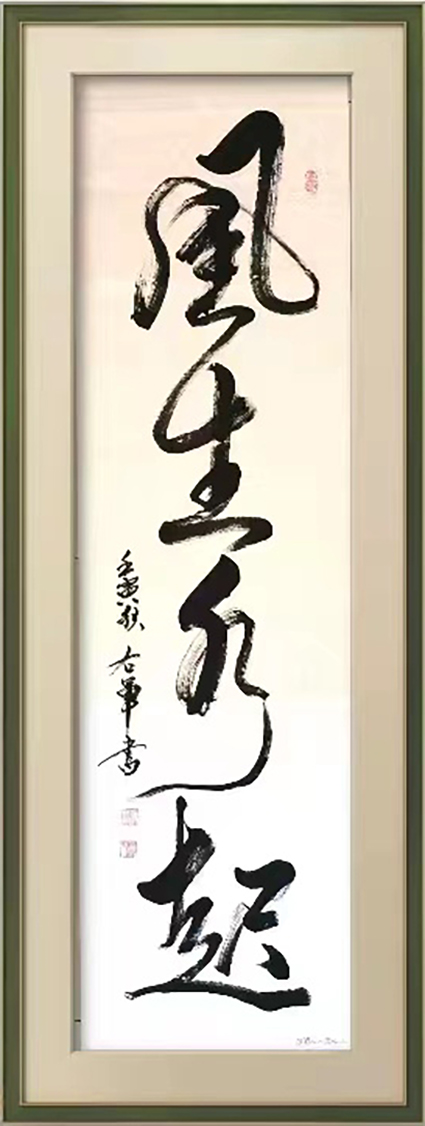 風生水起
壬寅秋 右軍書